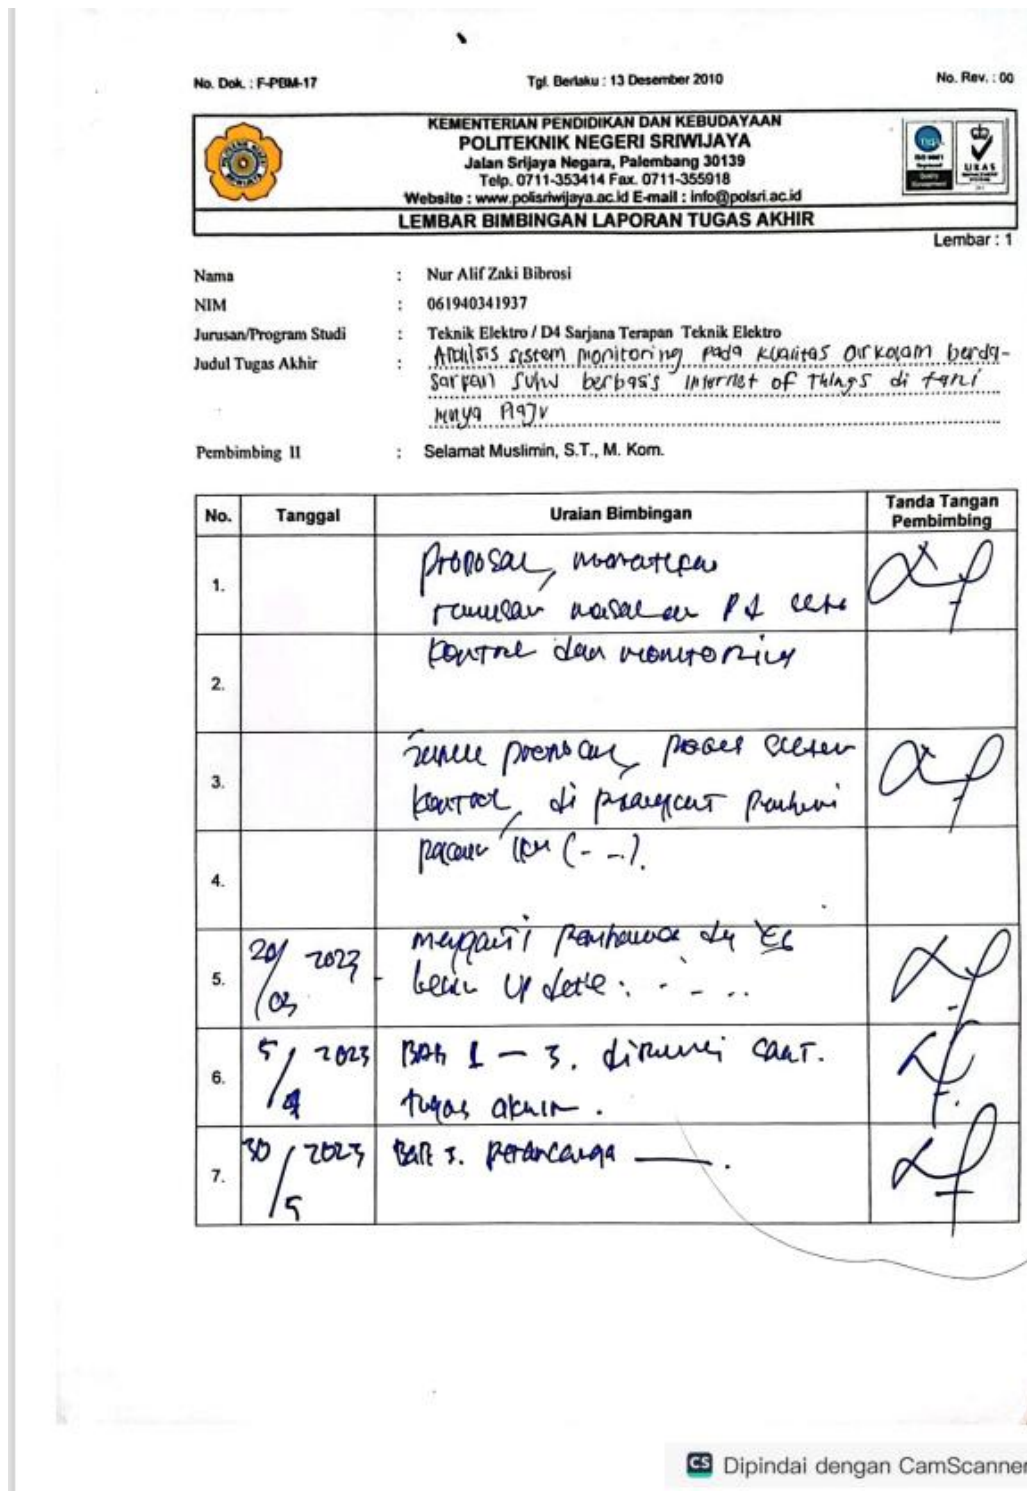 No. Dok. : F-PBM-17
Tgl. Berlaku : 13 Desember 2010
No. Rev. : 00
KEMENTERIAN PENDIDIKAN DAN KEBUDAYAAN
POLITEKNIK NEGERI SRIWIJAYA
Jalan Srijaya Negara, Palembang 30139
Telp. 0711-353414 Fax. 0711-355918
Website : www.polisriwijaya.ac.id E-mail : info@polsri.ac.id
LEMBAR BIMBINGAN LAPORAN TUGAS AKHIR
Lembar : 1
Nama : Nur Alif Zaki Bibrosi
NIM : 061940341937
Jurusan/Program Studi : Teknik Elektro / D4 Sarjana Terapan Teknik Elektro
Judul Tugas Akhir : Analisis sistem monitoring pada kualitas air kolam berda-
sarkan suhu berbasis Internet of Things di tani
Pembimbing II : Selamat Muslimin, S.T., M. Kom.
No. Tanggal Uraian Bimbingan Tanda Tangan Pembimbing
1. proposal,
rumusan masalah
2. kontrol dan monitoring
3.
kontrol, di
4.
5. 20/03 2023 mengganti
update : - - ..
6. 5/4 2023 BAB 1 - 3. saat.
tugas akhir.
7. 30/5 2023 BAB 3. perancanga
CS Dipindai dengan CamScanner